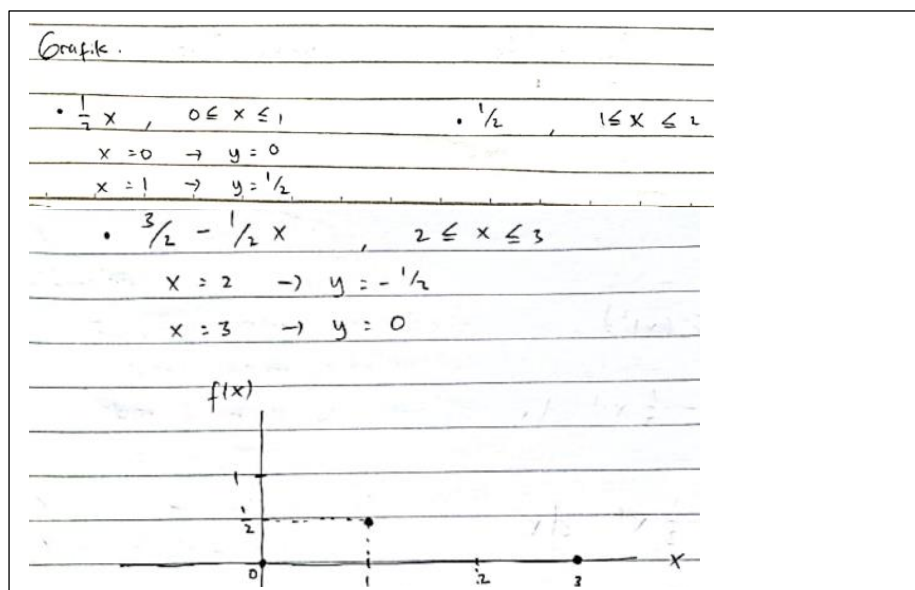 Grafik.
• 1/2 x , 0 ≤ x ≤ 1 • 1/2 , 1 ≤ x ≤ 2
x = 0 → y = 0
x = 1 → y = 1/2
• 3/2 - 1/2 x , 2 ≤ x ≤ 3
x = 2 → y = - 1/2
x = 3 → y = 0
f(x)
1
1/2
x
0 1 2 3